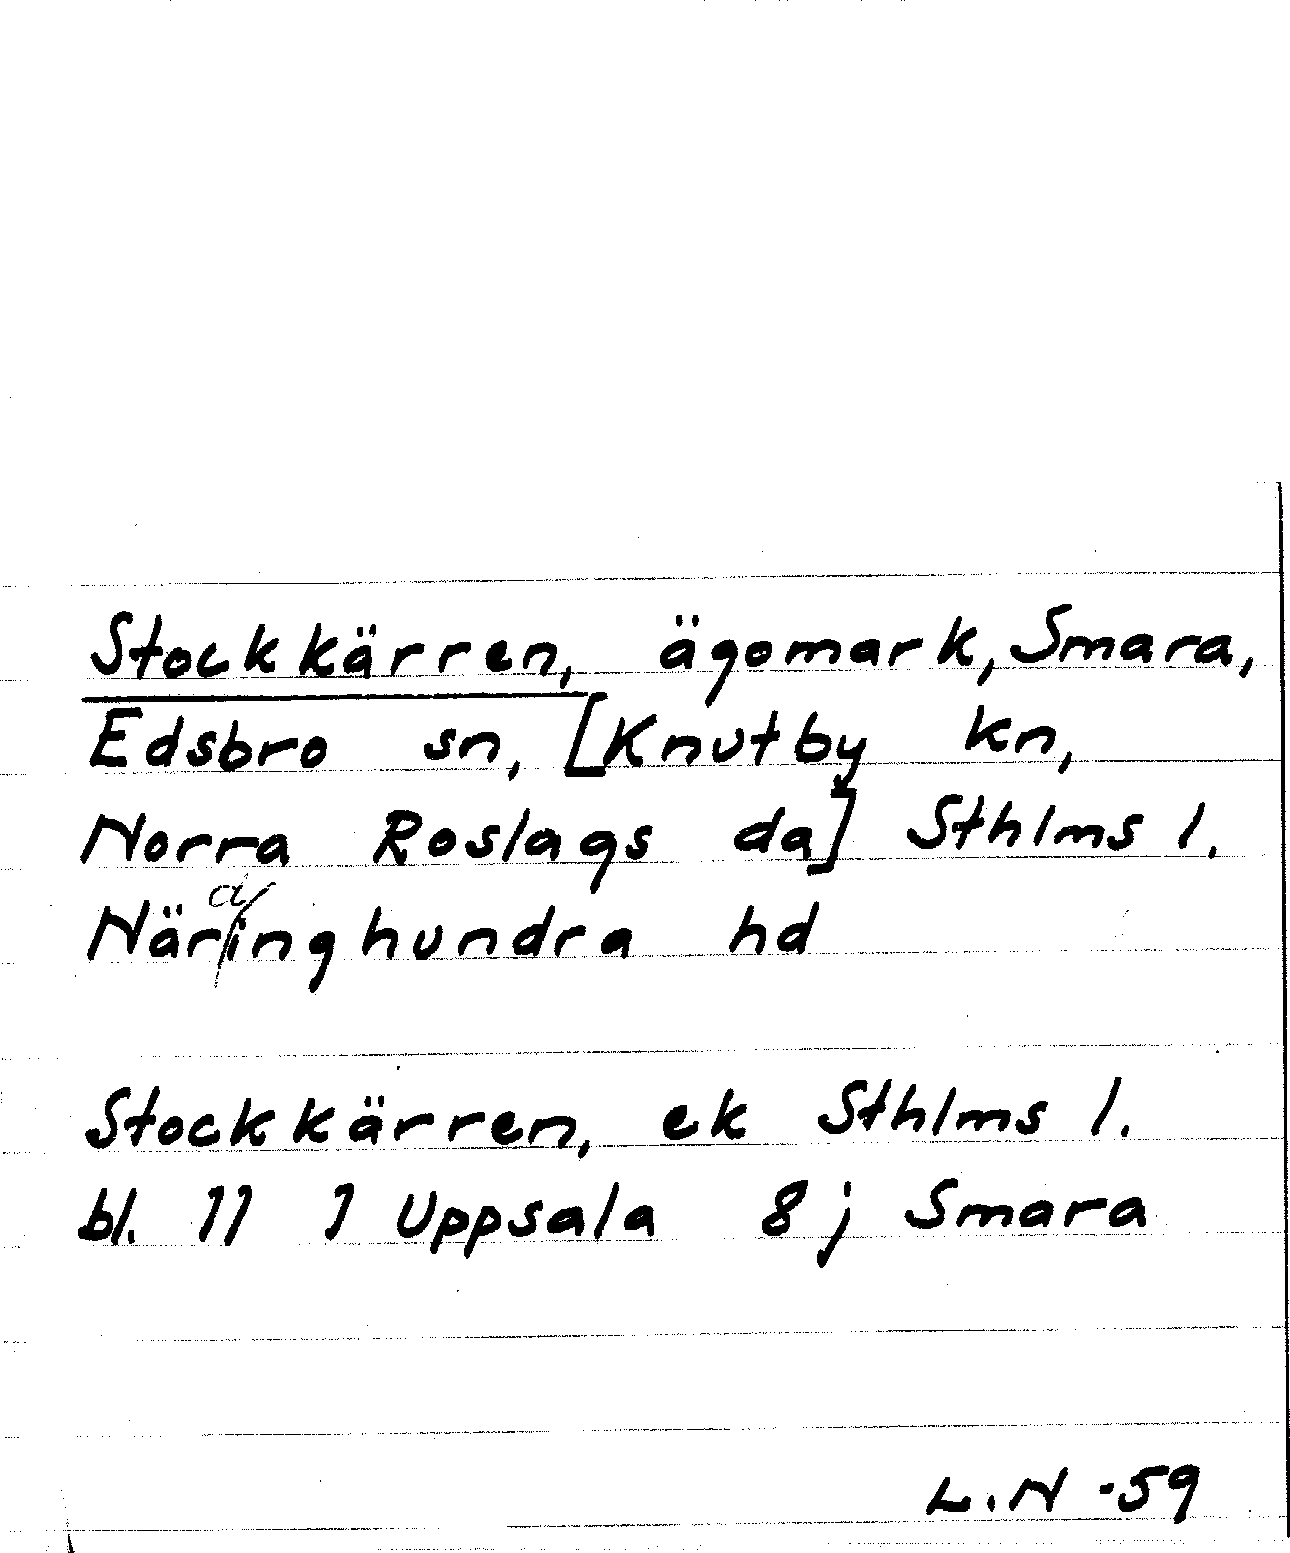 Stockkärren, ägomark, Smara,
Edsbro sn, [Knutby kn,
Norra Roslags da] Sthlms l.
Näringhundra hd
Stockkärren, ek Sthlms l.
bl. 11 1 Uppsala 8 j Smara
L.N -59